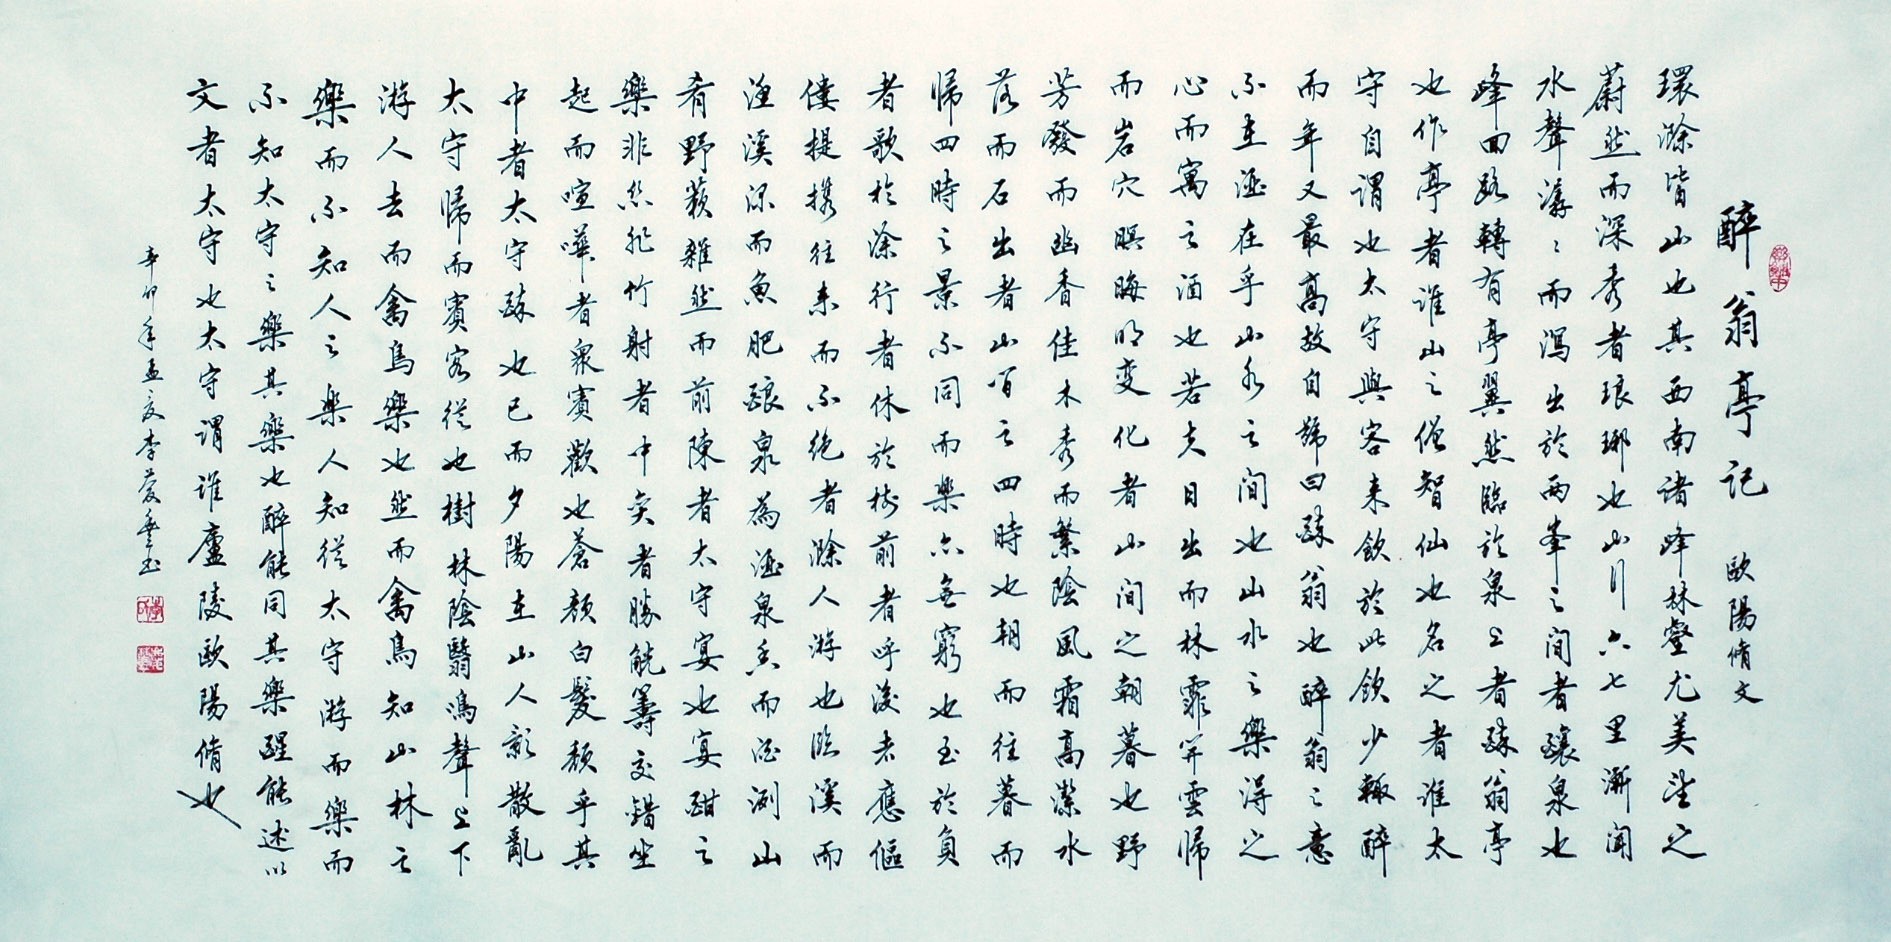 醉翁亭記 歐陽脩文
環滁皆山也其西南諸峰林壑尤美望之
蔚然而深秀者琅琊也山行六七里漸聞
水聲潺〻而瀉出於兩峯之间者釀泉也
峰回路轉有亭翼然臨於泉上者醉翁亭
也作亭者誰山之僧智仙也名之者誰太
守自謂也太守與客来飲於此飲少輒醉
而年又最高故自號曰醉翁也醉翁之意
不在酒在乎山水之间也山水之樂得之
心而寓之酒也若夫日出而林霏开雲歸
而岩穴暝晦明变化者山间之朝暮也野
芳發而幽香佳木秀而繁陰風霜高潔水
落而石出者山间之四時也朝而往暮而
歸四時之景不同而樂亦無窮也至於負
者歌於塗行者休於樹前者呼後者應傴
僂提携往来而不绝者滁人游也臨溪而
漁溪深而魚肥釀泉為酒泉香而酒洌山
肴野蔌雜然而前陳者太守宴也宴酣之
樂非丝非竹射者中奕者勝觥籌交錯坐
起而喧嘩者衆賓歡也蒼颜白髮頹乎其
中者太守醉也已而夕陽在山人影散亂
太守歸而賓客從也樹林陰翳鳴聲上下
游人去而禽鳥樂也然而禽鳥知山林之
樂而不知人之樂人知從太守游而樂而
不知太守之樂其樂也醉能同其樂醒能述以
文者太守也太守謂誰廬陵歐陽脩也
辛卯年孟夏李